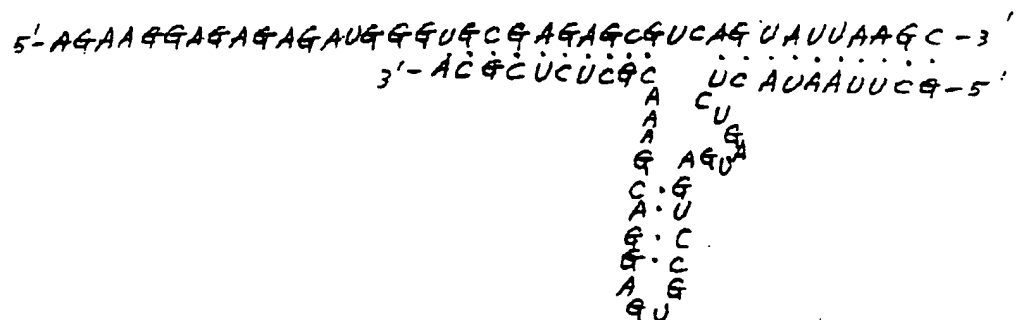 5'-AGAAGGAGAGAGAUGGGUGCGAGAGCGUCAGUAUUAAGC-3'
3'-ACGCUCUCGC UCAUAAUUCG-5'
A C
A U
A G
G AGUA
C·G
A·U
G·C
G·C
A G
G U